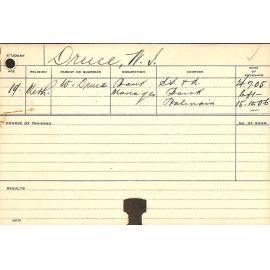 STUDENT
Druce, W. J.
AGE RELIGION PARENT OR GUARDIAN OCCUPATION ADDRESS DATE OF ENTRANCE
19 Meth. W. Druce Bank Manager Bank Balmain 24.7.05 left- 15.12.06
COURSE OF TRAINING NO. OF ROOM
RESULTS